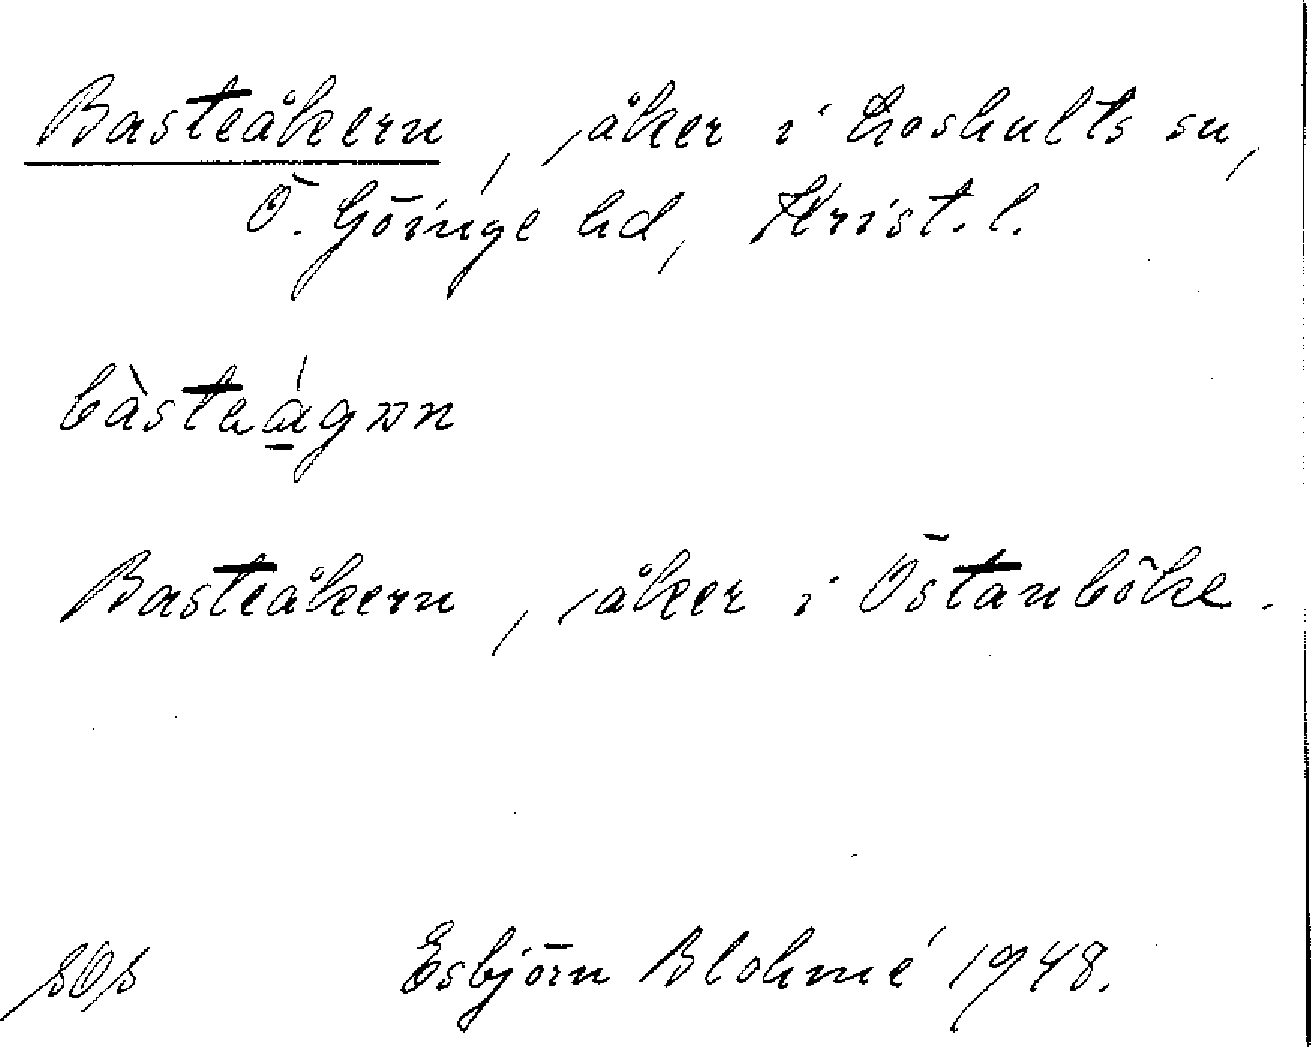 Basteåkern, åker i Loshults sn,
Ö. Göinge hd, Krist. l.
Basteåkern, åker i Östanböke.
Esbjörn Blohmé 1948.